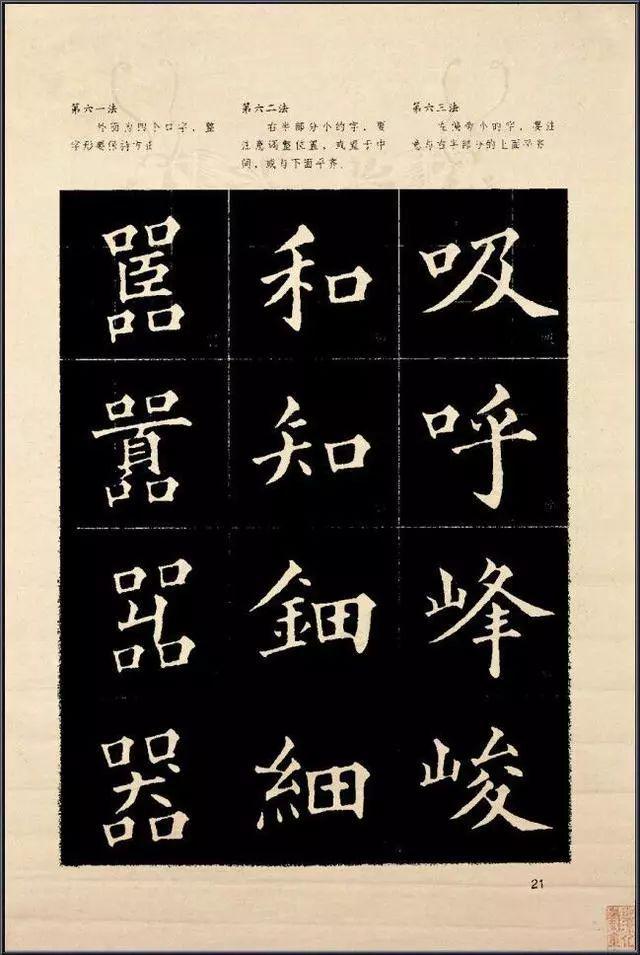 第六一法
外面为四个口字，整
字形要保持方正
嚚
囂
嘂
器
第六二法
右半部分小的字，要
注意调整位置，或置于中
间，或与下面平齐
和
知
鈿
細
第六三法
左偏旁小的字，要注
意与右半部分的上面平齐
吸
呼
峰
峻
21